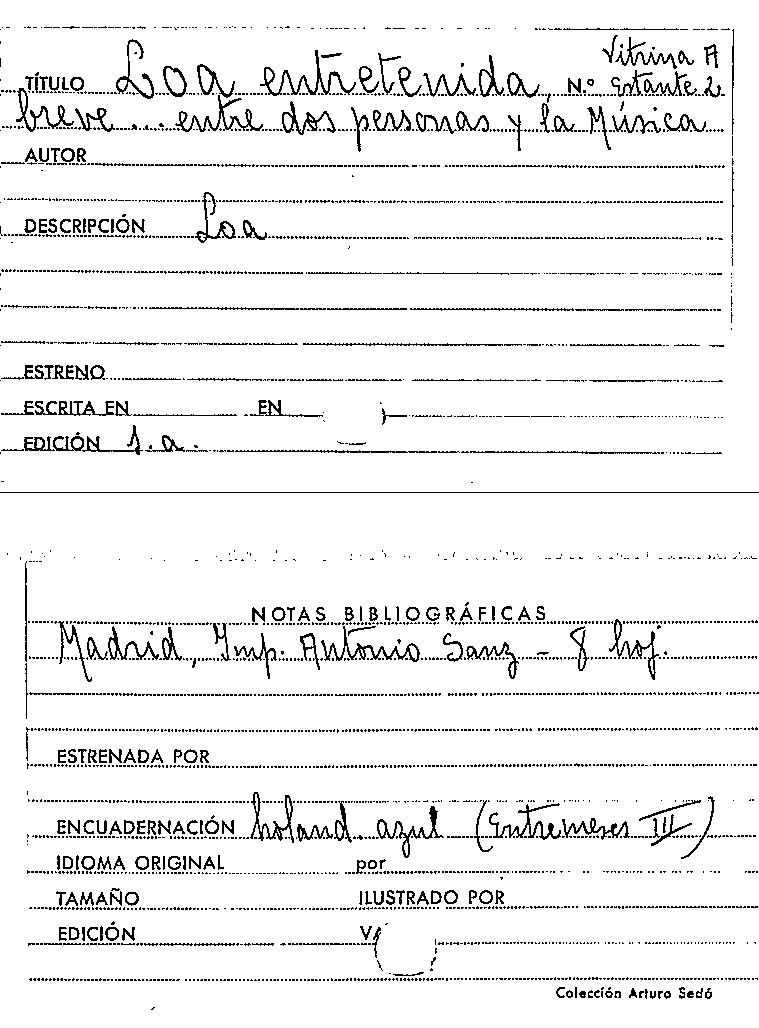 Vitrina A
TÍTULO Loa entretenida, N.º Estante 2
breve ... entre dos personas y la Música
AUTOR
DESCRIPCIÓN Loa
ESTRENO
ESCRITA EN EN
EDICIÓN s.a.
NOTAS BIBLIOGRÁFICAS
Madrid, Imp. Antonio Sanz - 8 hoj.
ESTRENADA POR
ENCUADERNACIÓN holand. azul (Entremeses III)
IDIOMA ORIGINAL por
TAMAÑO ILUSTRADO POR
EDICIÓN
Colección Arturo Sedó